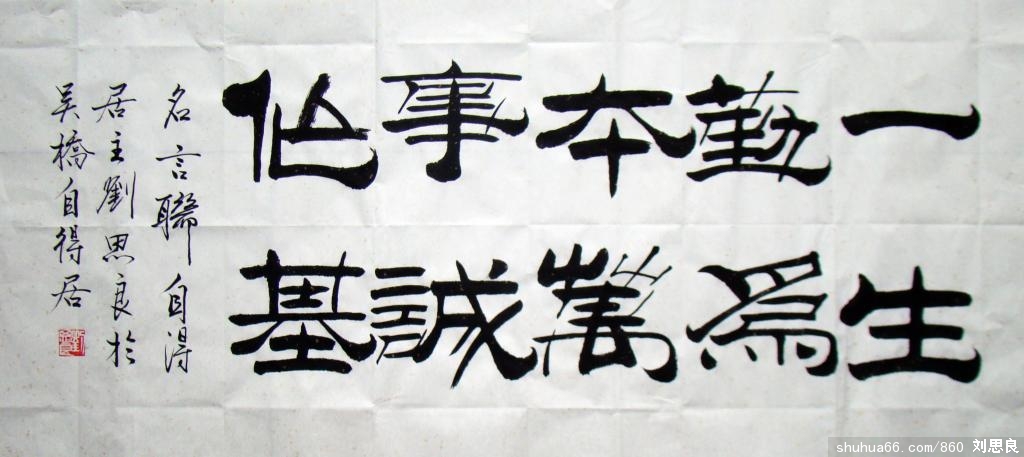 一生
勤爲
本萬
事誠
作基
名言聯自得
居主劉思良於
吴橋自得居
shuhua66.com/860 刘思良